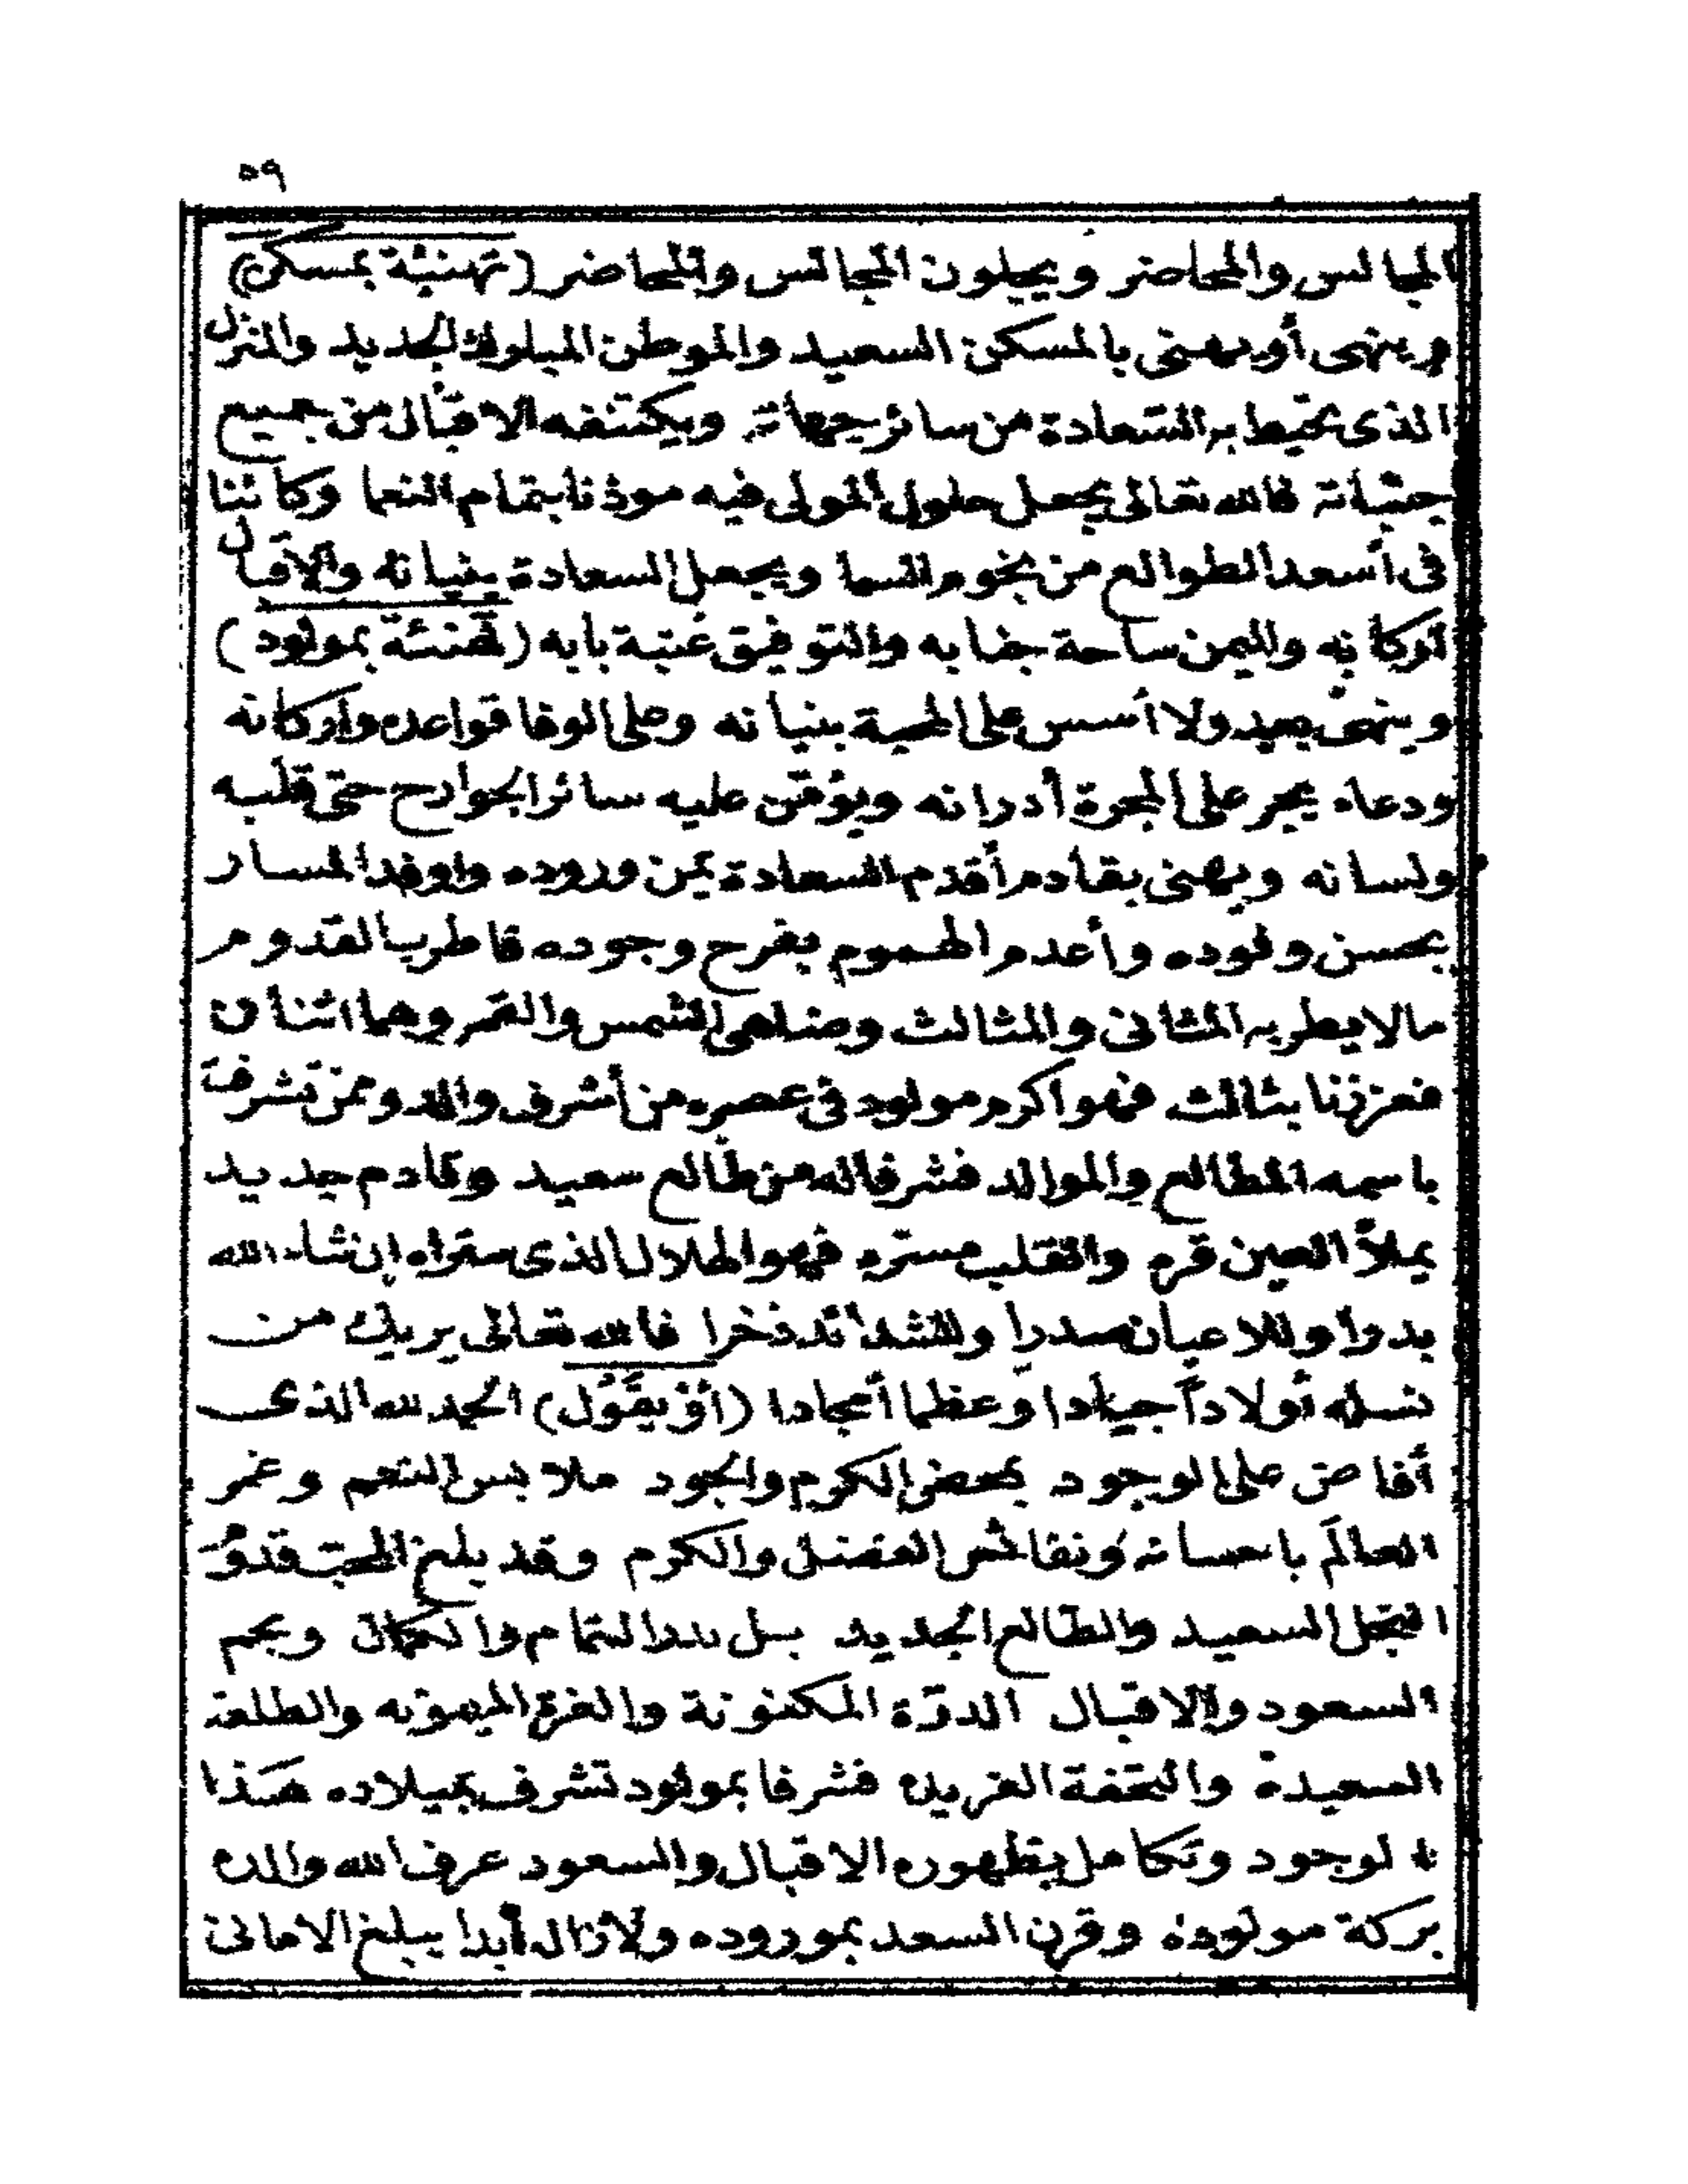 ٥٩
المجالس والمحاضر ويجملون المجالس والمحاضر (تهنئة بمسكن)
وينهى أو يهنى بالمسكن السعيد والموطن الجديد والمنزل
الذى تحيط به السعادة من سائر جهاته ويكتنفه الاقبال من جميع
جنباته فالله تعالى يجعل حلول المولى فيه موذنا بتمام النعما وكائنا
فى أسعد الطوالع من نجوم السما ويجعل السعادة بنيانه والاقبال
أركانه واليمن ساحة جنابه والتوفيق عتبة بابه (تهنئة بمولود)
وينهى بعد ولا أسس على المحبة بنيانه وعلى الوفا قواعده واركانه
ودعاء يجر على المجرة أدرانه ويؤمن عليه سائر الجوارح حتى قلبه
ولسانه ويهنى بقادم أقدم السعادة يمن وروده واوفد المسار
بحسن وفوده وأعدم الهموم بفرح وجوده فاطرب القدوم
مالا يطربه المثانى والمثالث وضاهى الشمس والقمر وهما اثنان
فعززنا بثالث فهو اكرم مولود فى عصره من أشرف والد وممن تشرفت
باسمه المطالع والموالد فشرفاله من طالع سعيد وقادم جديد
يملأ العين قره والقلب مسره فهو الهلال الذى ستراه إن شاء الله
بدرا وللاعيان صدرا وللشدائد ذخرا فالله تعالى يريك من
نسله أولاداً جيادا وعظما أمجادا (أَوْ يَقُول) الحمد لله الذى
أفاض على الوجود بمحض الكرم والجود ملابس النعم وغمر
العالَم باحسانه ونفائس الفضل والكرم وقد بلغ المحب قدوم
النجل السعيد والطالع الجديد بل بدر التمام والكمال ونجم
السعود والاقبال الدرّة المكنونة والغرة الميمونه والطلعة
السعيدة والتحفة الفريده فشرفا بمولود تشرف بميلاده هذا
الوجود وتكامل بظهوره الاقبال والسعود عرف الله والده
بركة مولوده وقرن السعد بموروده ولازال أبدا يبلغ الامانى